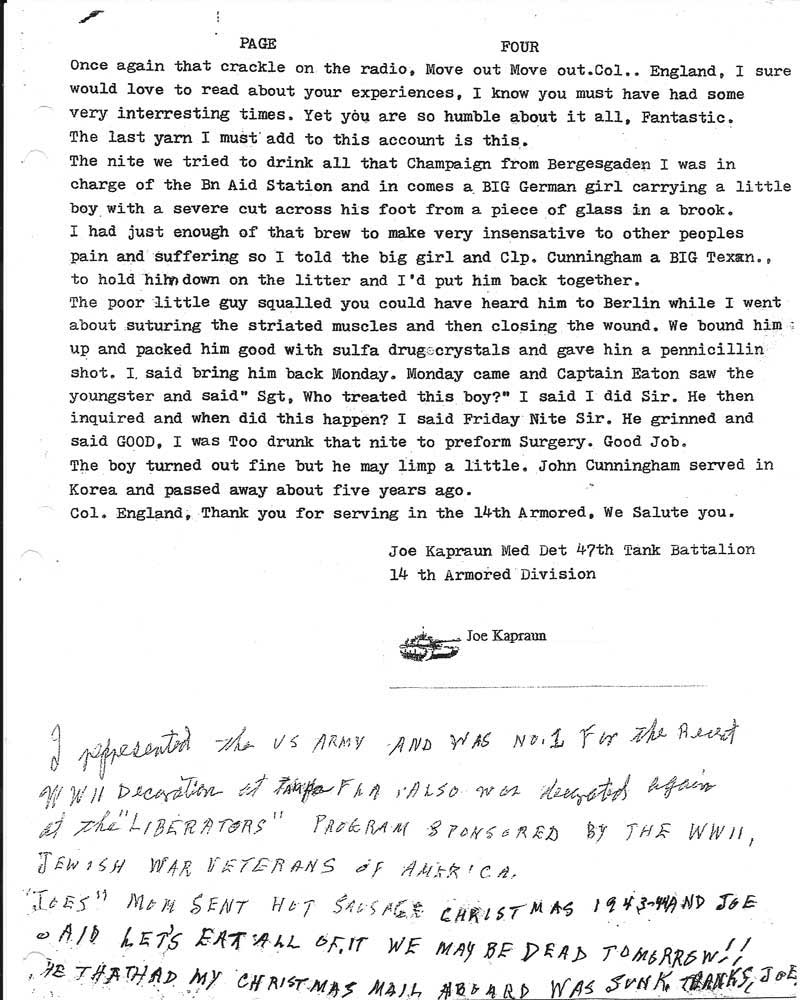 PAGE FOUR
Once again that crackle on the radio, Move out Move out.Col.. England, I sure
would love to read about your experiences, I know you must have had some
very interresting times. Yet you are so humble about it all, Fantastic.
The last yarn I must add to this account is this.
The nite we tried to drink all that Champaign from Bergesgaden I was in
charge of the Bn Aid Station and in comes a BIG German girl carrying a little
boy with a severe cut across his foot from a piece of glass in a brook.
I had just enough of that brew to make very insensative to other peoples
pain and suffering so I told the big girl and Clp. Cunningham a BIG Texan.,
to hold him down on the litter and I'd put him back together.
The poor little guy squalled you could have heard him to Berlin while I went
about suturing the striated muscles and then closing the wound. We bound him
up and packed him good with sulfa drug crystals and gave hin a pennicillin
shot. I said bring him back Monday. Monday came and Captain Eaton saw the
youngster and said" Sgt, Who treated this boy?" I said I did Sir. He then
inquired and when did this happen? I said Friday Nite Sir. He grinned and
said GOOD, I was Too drunk that nite to preform Surgery. Good Job.
The boy turned out fine but he may limp a little. John Cunningham served in
Korea and passed away about five years ago.
Col. England, Thank you for serving in the 14th Armored, We Salute you.
Joe Kapraun Med Det 47th Tank Battalion
14 th Armored Division
Joe Kapraun
I represented the US ARMY AND WAS NO.1 For the Recent
WWII Decoration at Tampa FLA. ALSO was decorated again
at the "LIBERATORS" PROGRAM SPONSORED BY THE WWII,
JEWISH WAR VETERANS OF AMERICA.
"JOES" MOM SENT HOT SAUSAGE CHRISTMAS 1943-44 AND JOE
SAID LET'S EAT ALL OF IT WE MAY BE DEAD TOMORROW!!
HE THAT HAD MY CHRISTMAS MAIL ABOARD WAS SUNK. THANKS, JOE